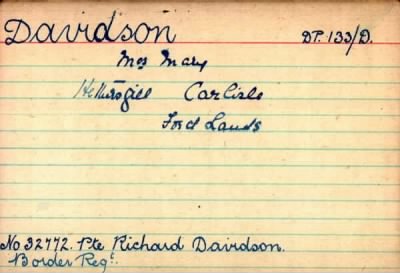 Davidson DP. 133/D.
Mrs Mary
Hethersgill Carlisle
Ford Lands
No 32772. Pte Richard Davidson.
Border Regt.